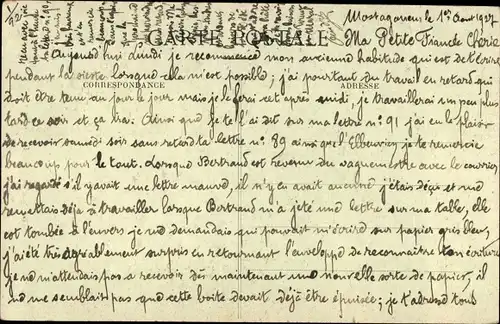 Mostaganem le 1er Aout 1927
CARTE POSTALE
Ma Petite Fiancée Chérie
Aujourd'hui Lundi je recommence mon ancienne habitude qui est de t'écrire
pendant la sieste lorsque cela m'est possible; j'ai pourtant du travail en retard qui
CORRESPONDANCE
ADRESSE
doit être tenu au jour le jour mais je le ferai cet après midi, je travaillerai un peu plus
tard ce soir et ça ira. Ainsi que je te l'ai dit sur ma lettre n° 91 j'ai eu le plaisir
de recevoir samedi soir sans retard ta lettre n° 89 ainsi que je te remercie
beaucoup pour le tout. Lorsque Bertrand est revenu du vaguemestre avec le courrier
j'ai regardé s'il y avait une lettre mauve, il n'y en avait aucune j'étais déçu et me
remettais déjà à travailler lorsque Bertrand m'a jeté une lettre sur ma table, elle
est tombée à l'envers je me demandais qui pouvait m'écrire sur papier gris bleu,
j'ai été très agréablement surpris en retournant l'enveloppe de reconnaître ton écriture
je ne m'attendais pas à recevoir dès maintenant une nouvelle sorte de papier, il
me semblait pas que cette boite devait déjà être épuisée; je t'adresse tous